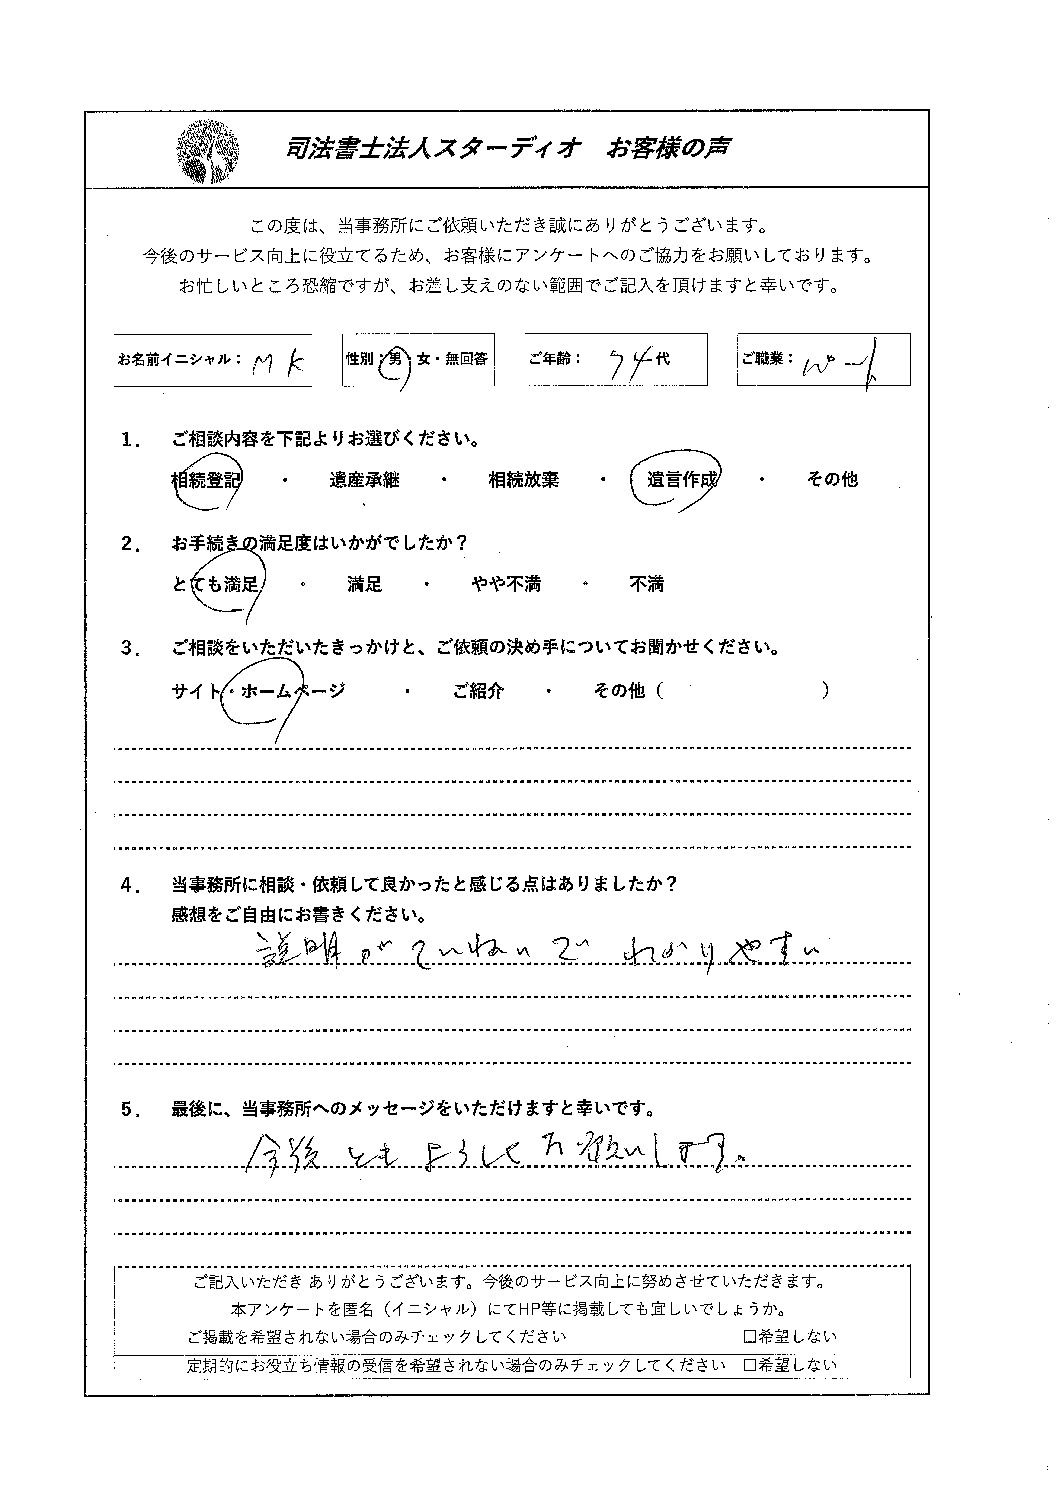 司法書士法人スターディオ　お客様の声
この度は、当事務所にご依頼いただき誠にありがとうございます。
今後のサービス向上に役立てるため、お客様にアンケートへのご協力をお願いしております。
お忙しいところ恐縮ですが、お差し支えのない範囲でご記入を頂けますと幸いです。
お名前イニシャル： M K　性別：男・女・無回答　ご年齢： 74代　ご職業：
1.　ご相談内容を下記よりお選びください。
相続登記　・　遺産承継　・　相続放棄　・　遺言作成　・　その他
2.　お手続きの満足度はいかがでしたか？
とても満足　・　満足　・　やや不満　・　不満
3.　ご相談をいただいたきっかけと、ご依頼の決め手についてお聞かせください。
サイト・ホームページ　・　ご紹介　・　その他（　　　）
4.　当事務所に相談・依頼して良かったと感じる点はありましたか？
感想をご自由にお書きください。
説明がていねいで わかりやすい
5.　最後に、当事務所へのメッセージをいただけますと幸いです。
今後ともよろしくお願いします。
ご記入いただき ありがとうございます。今後のサービス向上に努めさせていただきます。
本アンケートを匿名（イニシャル）にてHP等に掲載しても宜しいでしょうか。
ご掲載を希望されない場合のみチェックしてください　□希望しない
定期的にお役立ち情報の受信を希望されない場合のみチェックしてください　□希望しない